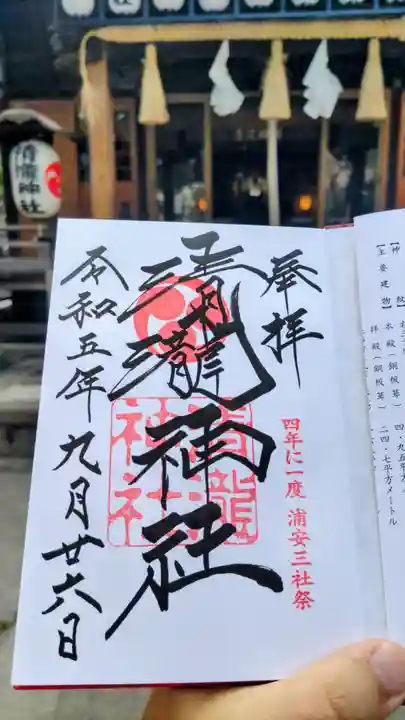 奉拝
清瀧神社
令和五年九月廿六日
四年に一度 浦安三社祭
清瀧神社
清瀧神社
【神紋】
【主要建物】
本殿(銅板葺)
拝殿(銅板葺)
二四・七平方メートル